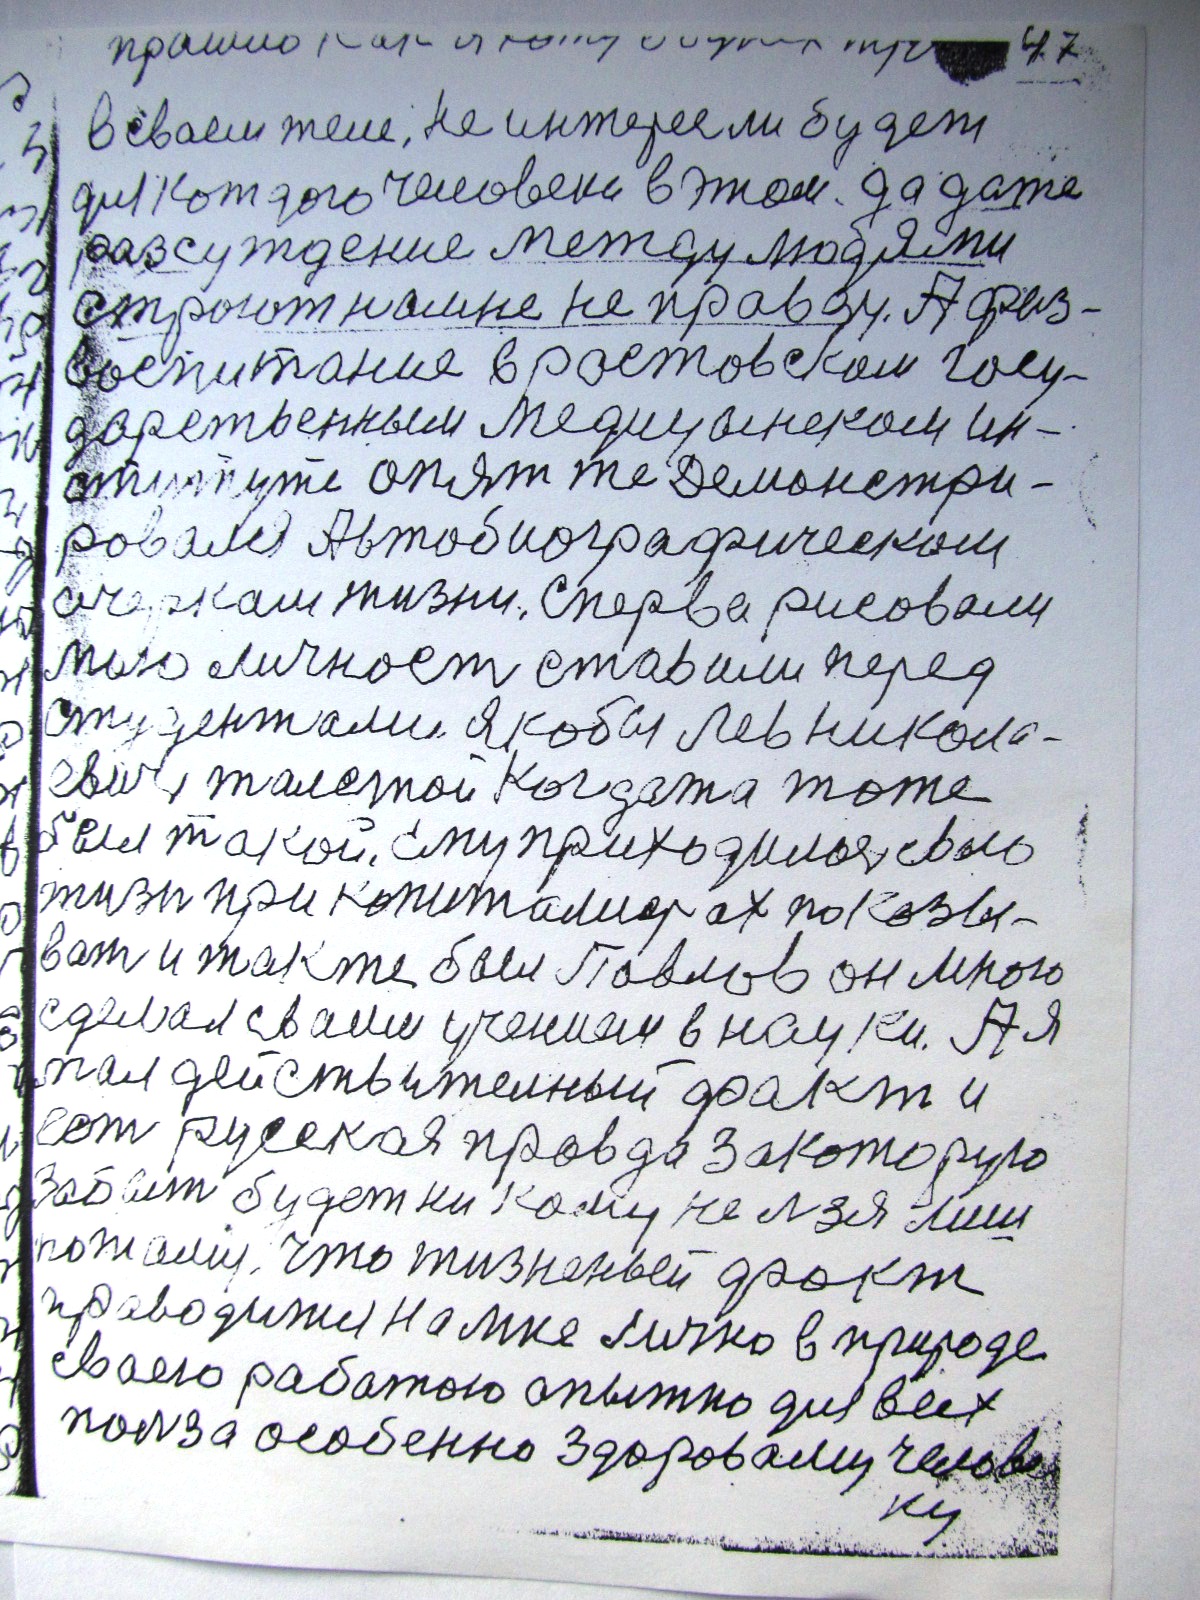 47
в сваем теле, не интерес ли будет
для кождого человека в этом. да даже
разсуждение между людями
строют на мне не правду. А физ-
воспитание в ростовском госу-
дарственным медицынском ин-
ституте опят же Демонстри-
ровался Автобиографическом
очеркам жизни. Сперва рисовали
мою личност ставили перед
студентами. якобы Лев никола-
евич талстой Когдата тоже
был такой, ему приходилося свою
жизн при копиталистах показы-
ват и также был Павлов он много
сделал сваим учением в науки. А я
пал действителный факт и
ест русская правда закоторую
забыт будет ни кому не лзя лиш
потаму, что жизненый факт
праводится на мне лично в природе
сваею работою опытно для всех
полза особенно здороваму челове
ку